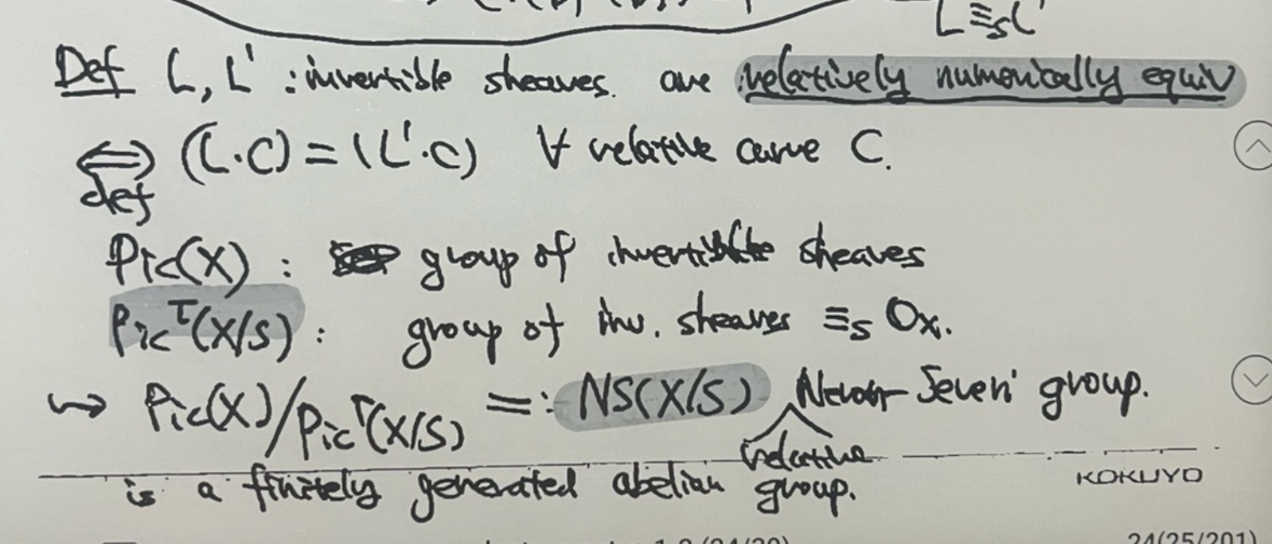 L ≡_S L'
Def L, L' : invertible sheaves. are relatively numerically equiv
⟺ (L·C) = (L'·C) ∀ relative curve C.
def
Pic(X) : group of invertible sheaves
Pic^τ(X/S) : group of inv. sheaves ≡_S O_X.
↪ Pic(X)/Pic^τ(X/S) =: NS(X/S) Severi group.
relative
is a finitely generated abelian group.
KOKUYO
24(25/201)